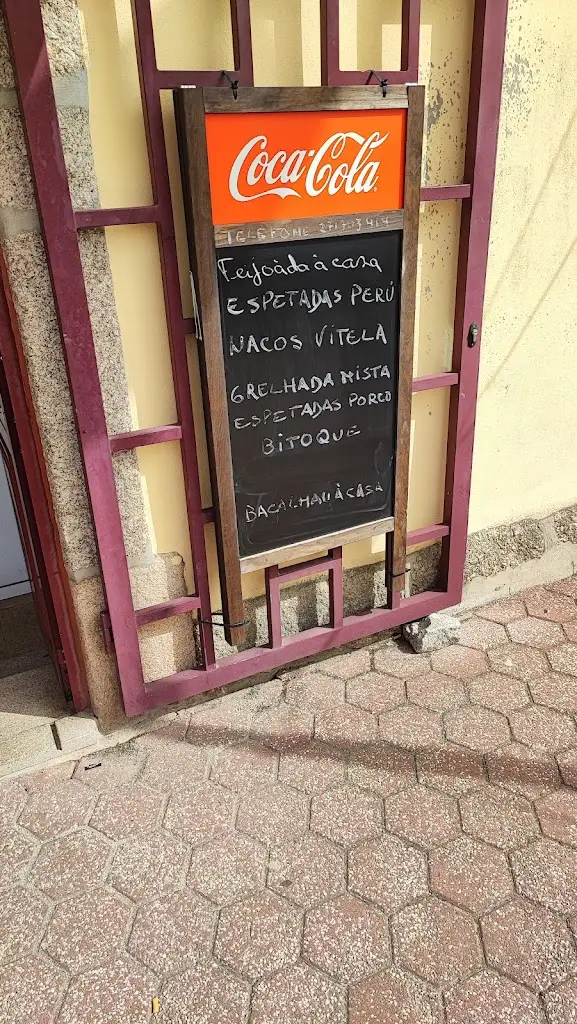 Coca-Cola
TELEFONE 271703414
Feijoàda à casa
ESPETADAS PERÚ
NACOS VITELA
GRELHADA MISTA
ESPETADAS PORCO
BITOQUE
BACALHAU À CASA